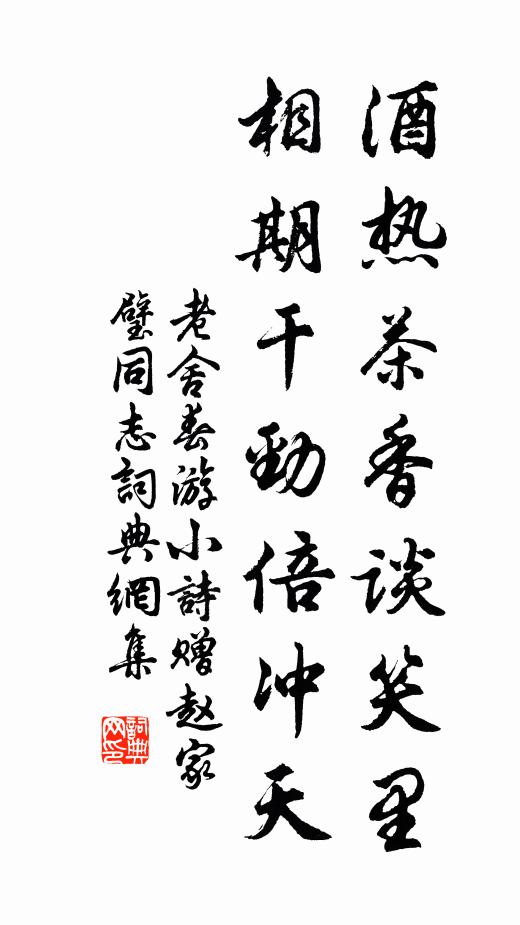 酒热茶香谈笑里
相期干劲倍冲天
老舍春游小詩赠赵家
璧同志詞典網集
詞典
网印